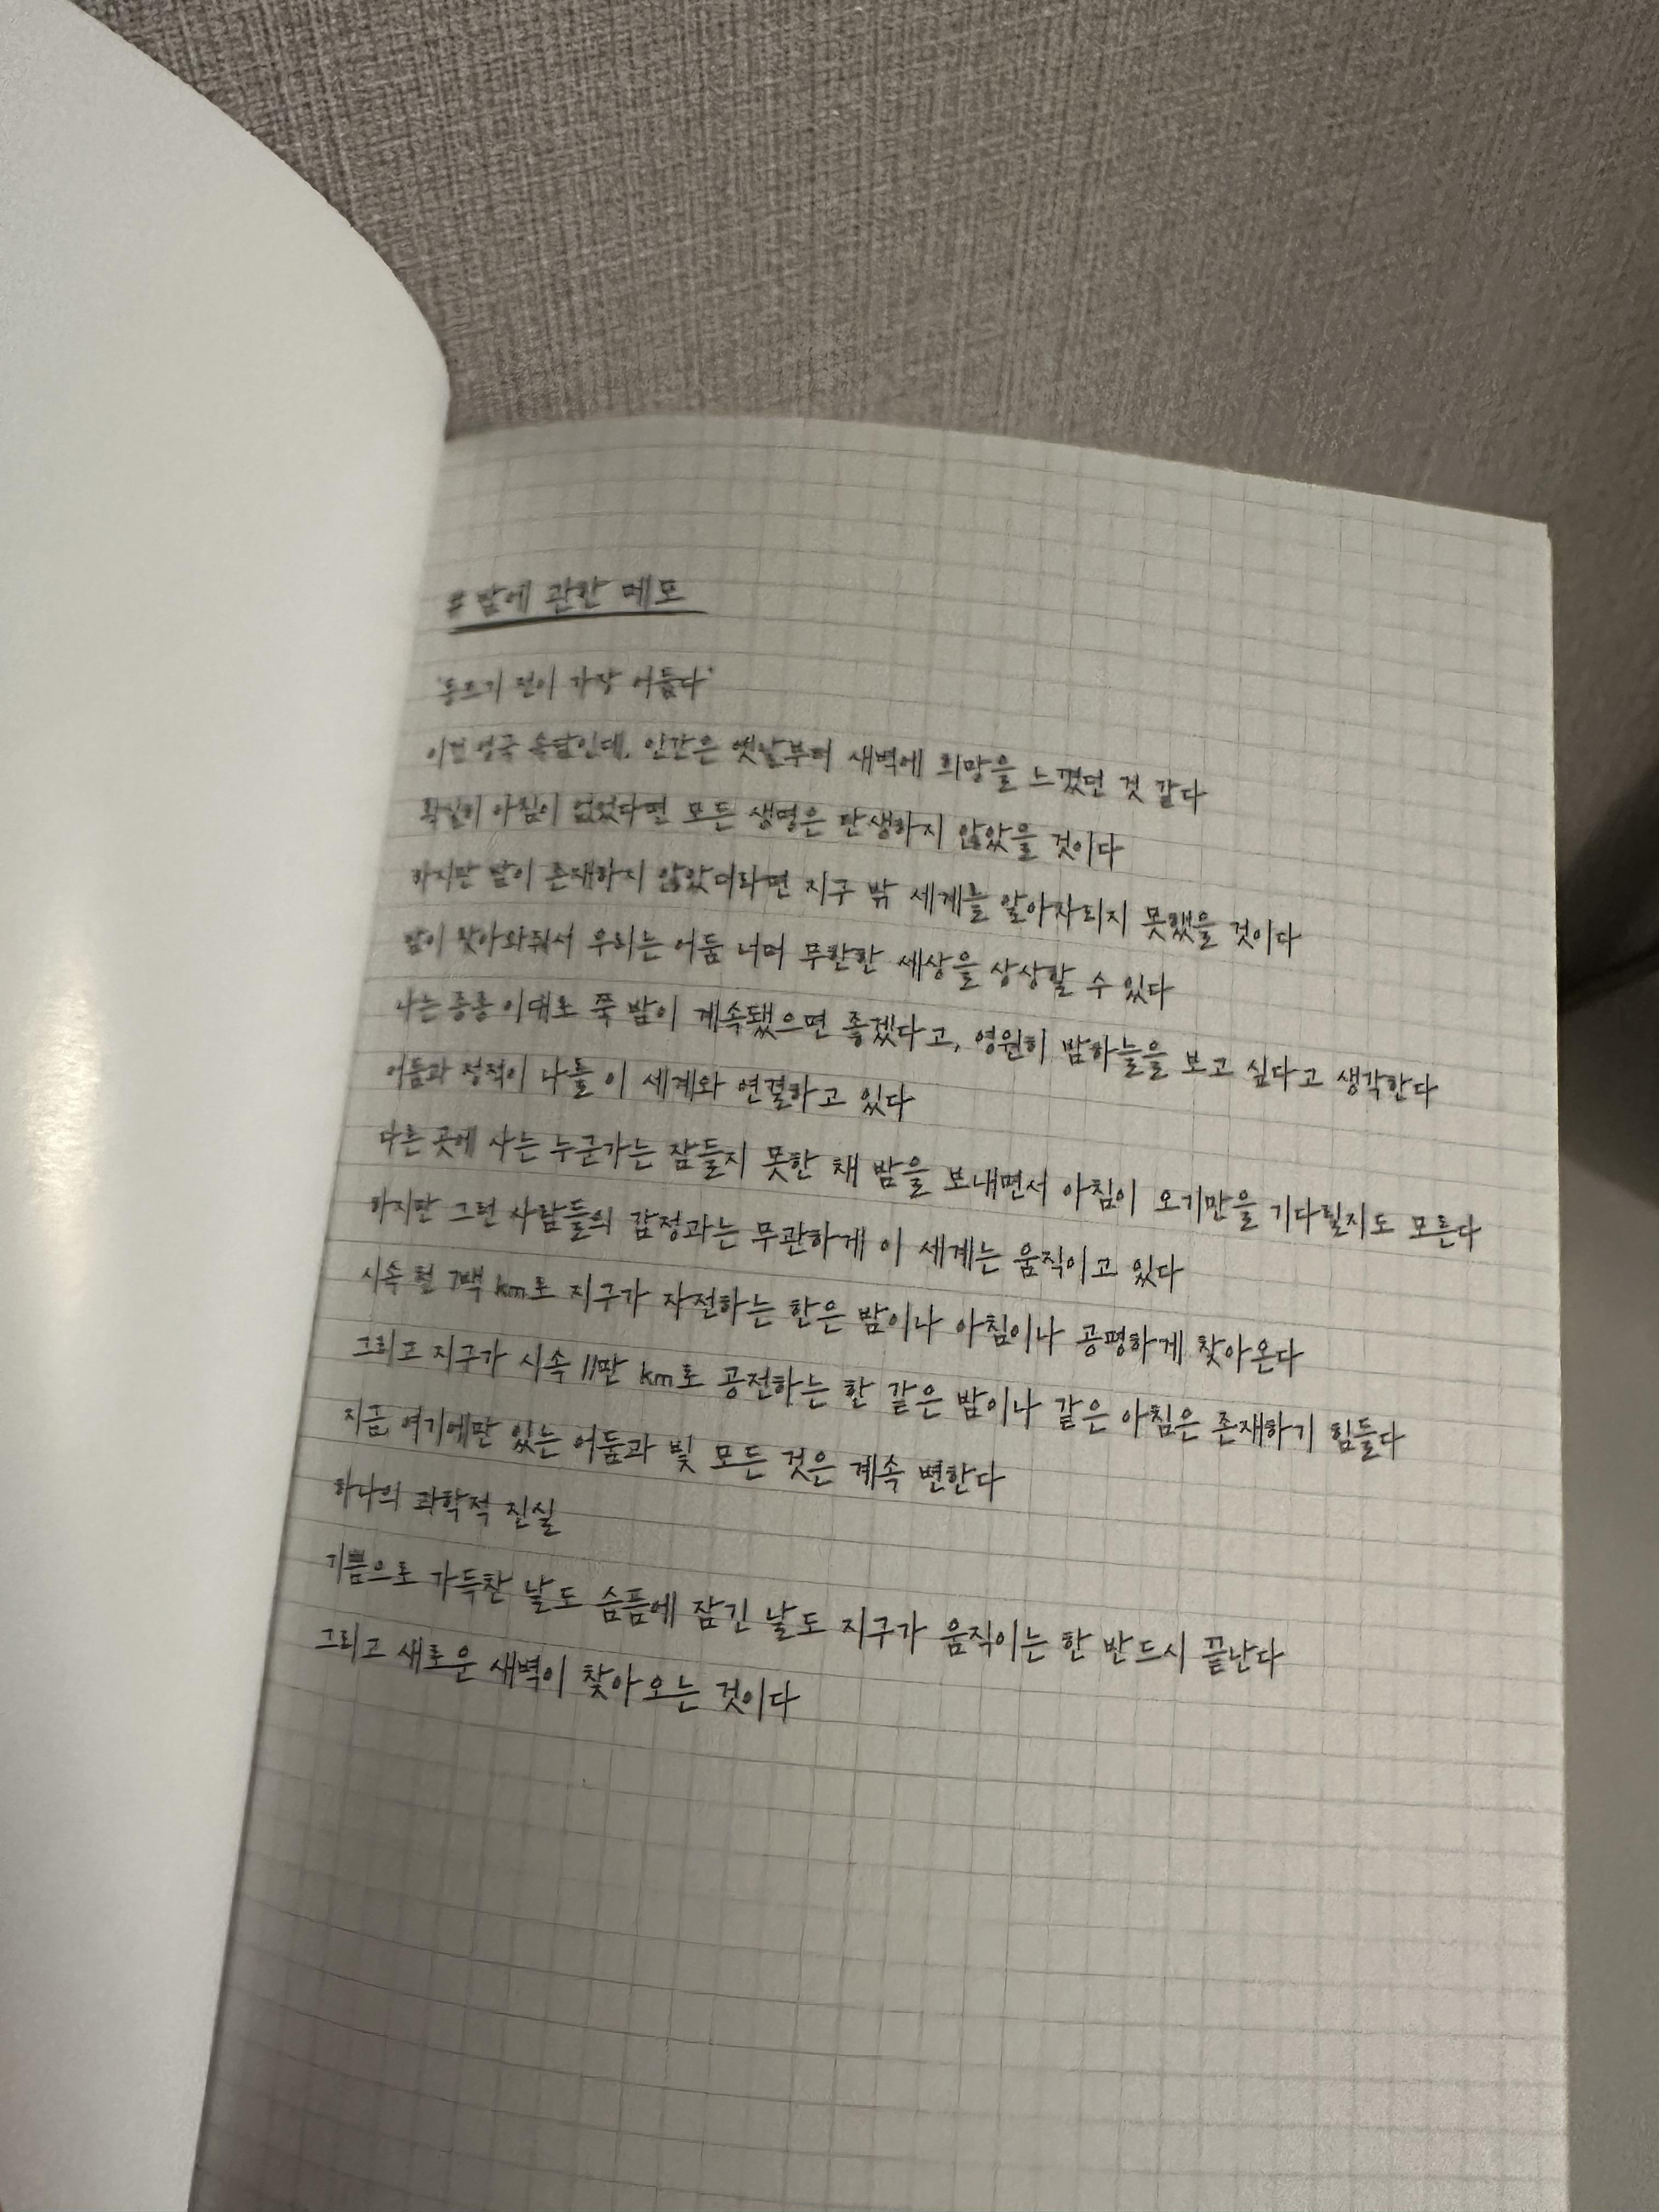 # 밤에 관한 메모
'동트기 전이 가장 어둡다'
이건 영국 속담인데, 인간은 옛날부터 새벽에 희망을 느꼈던 것 같다
확실히 아침이 없었다면 모든 생명은 탄생하지 않았을 것이다
하지만 밤이 존재하지 않았더라면 지구 밖 세계를 알아차리지 못했을 것이다
밤이 찾아와줘서 우리는 어둠 너머 무한한 세상을 상상할 수 있다
나는 종종 이대로 쭉 밤이 계속됐으면 좋겠다고, 영원히 밤하늘을 보고 싶다고 생각한다
어둠과 정적이 나를 이 세계와 연결하고 있다
다른 곳에 사는 누군가는 잠들지 못한 채 밤을 보내면서 아침이 오기만을 기다릴지도 모른다
하지만 그런 사람들의 감정과는 무관하게 이 세계는 움직이고 있다
시속 천 7백 km로 지구가 자전하는 한은 밤이나 아침이나 공평하게 찾아온다
그리고 지구가 시속 11만 km로 공전하는 한 같은 밤이나 같은 아침은 존재하기 힘들다
지금, 여기에만 있는 어둠과 빛 모든 것은 계속 변한다
하나의 과학적 진실
기쁨으로 가득찬 날도 슬픔에 잠긴 날도 지구가 움직이는 한 반드시 끝난다
그리고 새로운 새벽이 찾아오는 것이다